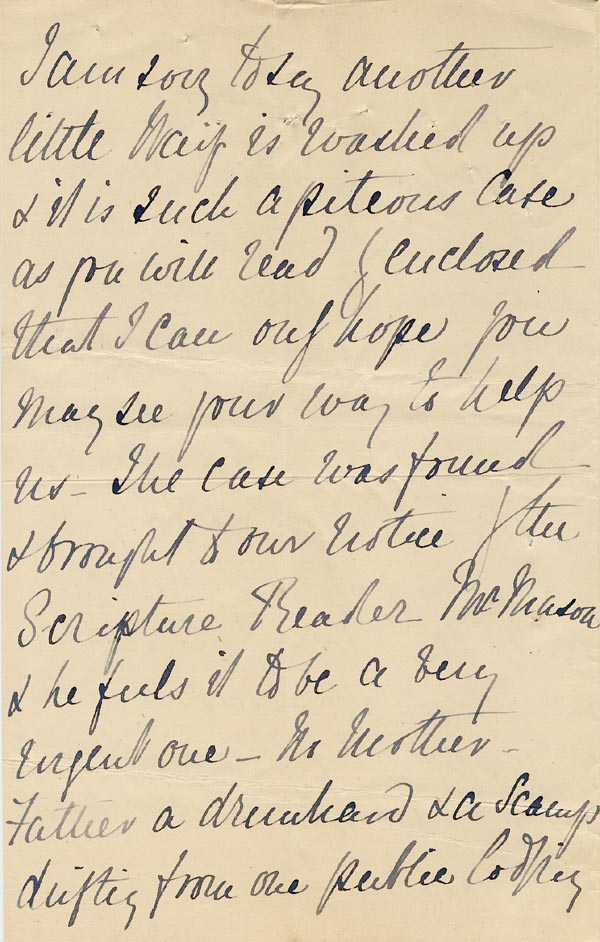 I am sorry to say another
little Waif is washed up
& it is such a piteous case
as you will read by enclosed
that I can only hope you
may see your way to help
us - The case was found
& brought to our notice by the
Scripture Reader Mr Mason
& he feels it to be a very
urgent one - No Mother -
Father a drunkard & a Scamp
drifting from one public lodging